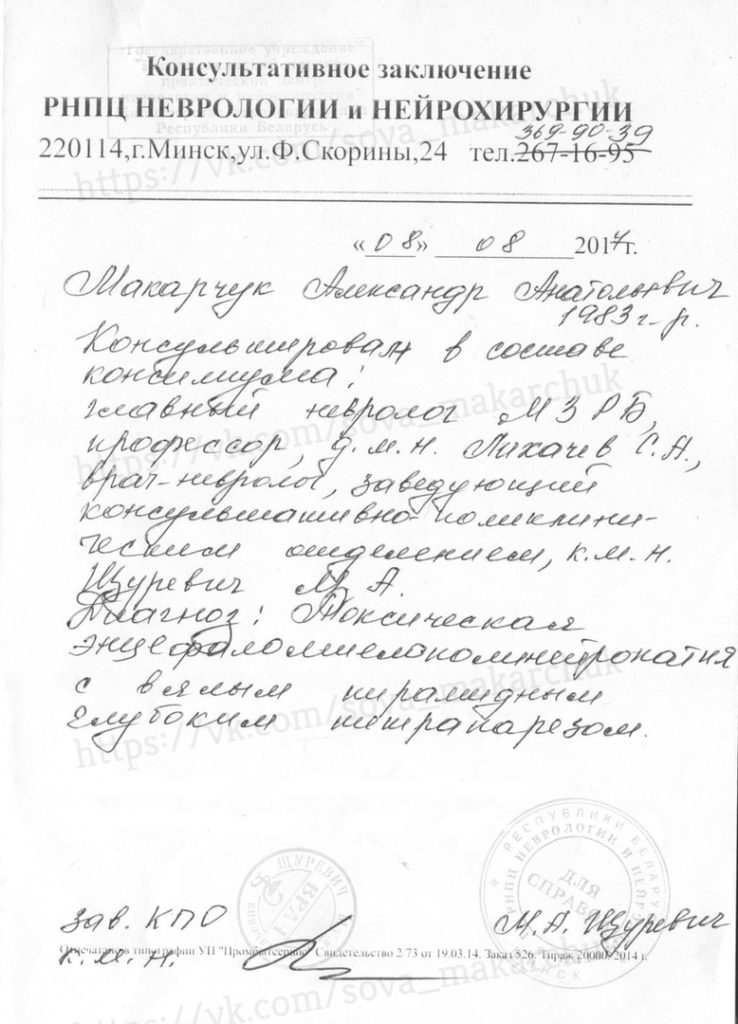 "Государственное учреждение
Республики Беларусь
Консультативное заключение
РНПЦ НЕВРОЛОГИИ и НЕЙРОХИРУРГИИ
369-90-39
220114,г.Минск,ул.Ф.Скорины,24 тел.267-16-95
https://vk.com/sova_makarchuk
«08» 08 2017г.
Макарчук Александр Анатольевич
1983 г.р.
Консультирован в составе
консилиума:
главный невролог МЗ РБ,
профессор, д.м.н. Лихачев С.А.,
врач-невролог, заведующий
консультативно-поликлини-
https://vk.com/sova_makarchuk
ческим отделением, к.м.н.
Щуревич М.А.
Диагноз: Токсическая
энцефаломиелополинейропатия
с вялым пирамидным
глубоким тетрапарезом.
https://vk.com/sova_makarchuk
РЕСПУБЛИКИ БЕЛАРУСЬ
РНПЦ НЕВРОЛОГИИ И НЕЙРО
ДЛЯ
СПРАВОК
МИНСК
ЩУРЕВИЧ
ВРАЧ
зав. КПО М.А. Щуревич
Отпечатано в типографии УП "Промбытсервис" Свидетельство 2/73 от 19.03.14. Заказ 526. Тираж 20000. 2014 г.
к.м.н.
https://vk.com/sova_makarchuk